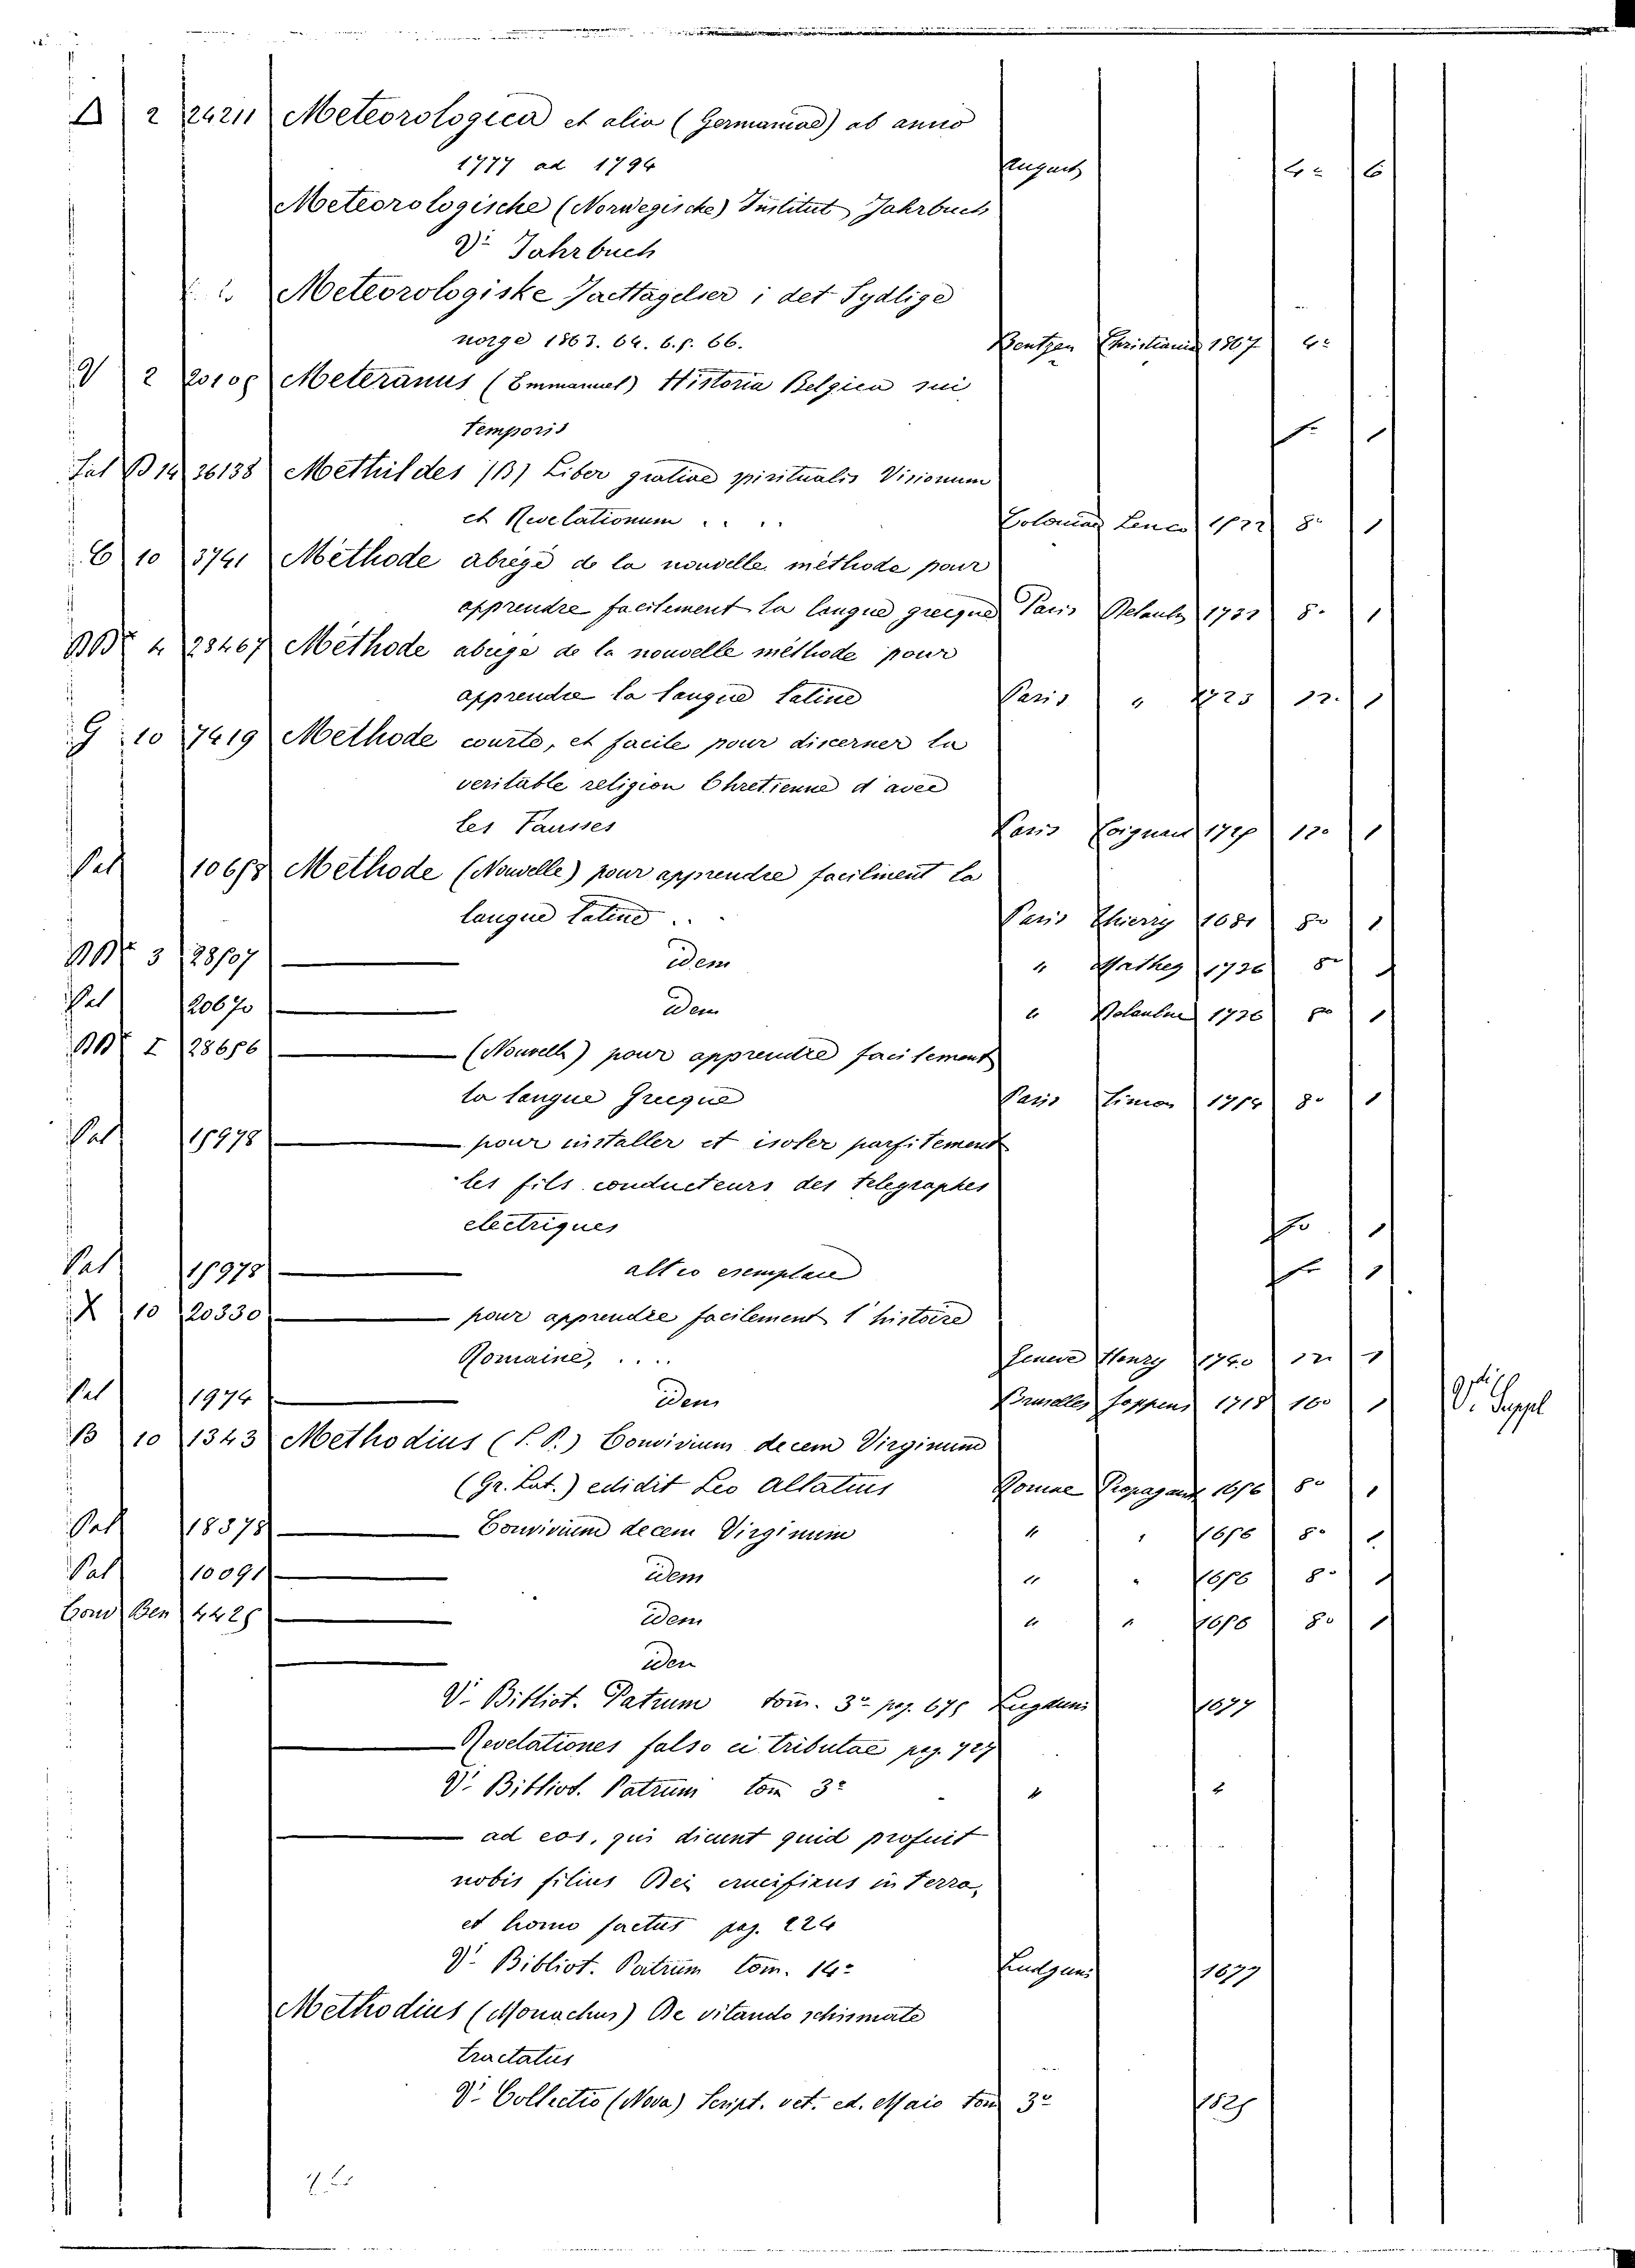 2 24211 Meteorologica et alia (Germaniae) ab anno
1777 ad 1794 August 4º 6
Meteorologische (Norwegische) Institut Jahrbuch
Vi Jahrbuch
Meteorologiske Jacttagelser i det Sydlige
norge 1863. 64. 65. 66. Bentzen Christiania 1867 4º
V 2 20105 Meteranus (Emmanuel) Historia Belgica sui
temporis fº 1
B 14 36138 Methildes (B) Liber gratiae spiritualis Visionum
et Revelationum . . . . 8º 1
C 10 3741 Méthode abregé de la nouvelle méthode pour
apprendre facilement la langue grecque Paris 8º 1
4 28467 Méthode abrégé de la nouvelle méthode pour
apprendre la langue latine Paris " 1723 12º 1
G 10 7419 Methode courte, et facile pour discerner la
veritable religion Chretienne d'avec
les Fausses Paris Coignard 12º 1
Pal Methode (Nouvelle) pour apprendre faciliment la
langue latine . . . Paris Thierry 1681 8º 1
3 idem " 1736 8º 1
Pal 20670 idem " 1736 8º 1
I 28656 (Nouvelle) pour apprendre facilement
la langue Grecque Paris Simon 1754 8º 1
Pal 15978 pour installer et isoler parfitement
les fils conducteurs des telegraphes
electriques fº 1
Pal 15978 altro esemplare fº 1
X 10 20330 pour apprendre facilement l'histoire
Romaine, . . . . Henry 1740 12º 1
Pal 1974 idem Bruxelles Foppens 1718 16º 1 V. Suppl
B 10 1343 Methodius (S. P.) Convivium decem Virginum
(Gr. Lat.) edidit Leo Allatius Romae Propagand 1656 8º 1
Pal 18378 Convivium decem Virginum " " 1656 8º 1
Pal 10091 idem " " 1656 8º 1
Ben 4425 idem " " 1656 8º 1
idem
Vi Bibliot. Patrum tom. 3º pag. 675 Lugduni 1677
Revelationes falso ei tributae pag. 727
Vi Bibliot. Patrum tom 3º " "
ad eos, qui dicunt quid profuit
nobis filius Dei crucifixus in terra,
et homo factus pag. 224
Vi Bibliot. Patrum tom. 14º 1677
Methodius (Monachus) De vitando schismate
tractatus
Vi Collectio (Nova) Script. vet. ed. Maio tom 3º 1825